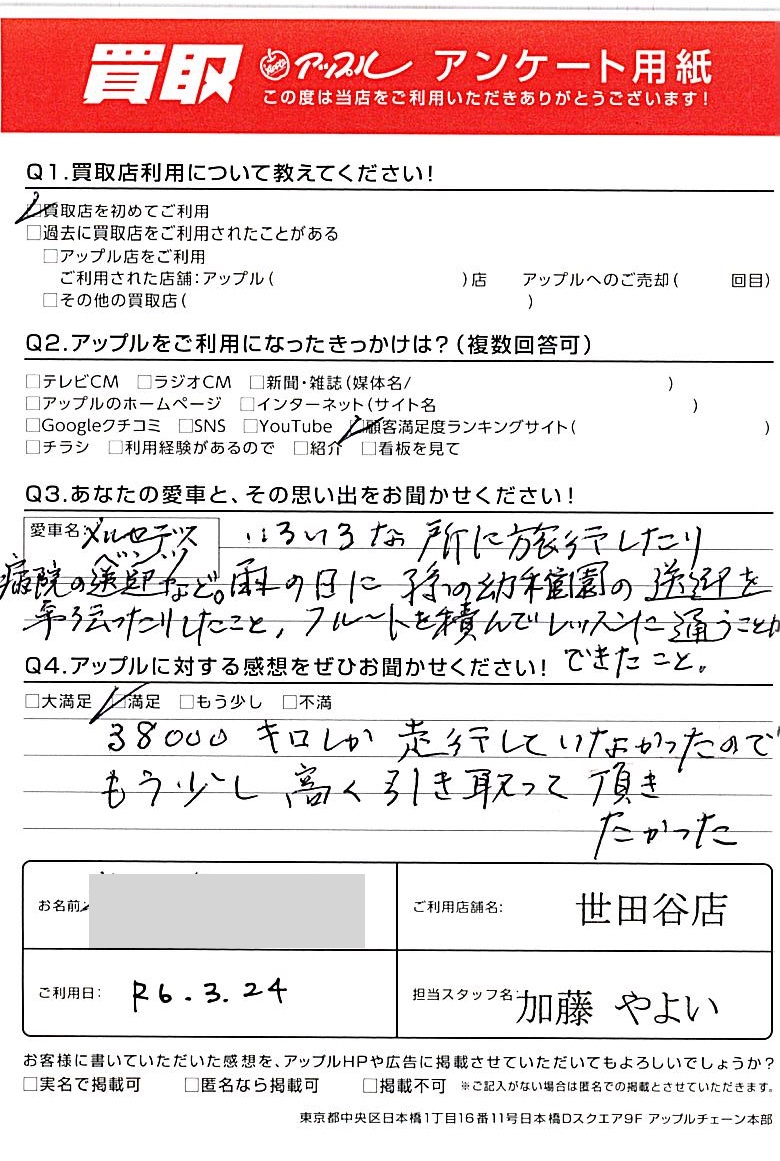 買取 アップル アンケート用紙
この度は当店をご利用いただきありがとうございます!
Q1.買取店利用について教えてください!
☑買取店を初めてご利用
□過去に買取店をご利用されたことがある
□アップル店をご利用
ご利用された店舗:アップル( )店 アップルへのご売却( 回目)
□その他の買取店( )
Q2.アップルをご利用になったきっかけは?(複数回答可)
□テレビCM □ラジオCM □新聞・雑誌(媒体名/ )
□アップルのホームページ □インターネット(サイト名 )
□Googleクチコミ □SNS □YouTube ☑顧客満足度ランキングサイト( )
□チラシ □利用経験があるので □紹介 □看板を見て
Q3.あなたの愛車と、その思い出をお聞かせください!
愛車名:メルセデスベンツ いろいろな所に旅行したり
病院の送迎など。雨の日に孫の幼稚園の送迎を
手伝ったりしたこと、フルートを積んでレッスンに通うことが
できたこと。
Q4.アップルに対する感想をぜひお聞かせください!
□大満足 ☑満足 □もう少し □不満
38000キロしか走行していなかったので
もう少し高く引き取って頂き
たかった
お名前: ご利用店舗名: 世田谷店
ご利用日: R6.3.24 担当スタッフ名: 加藤 やよい
お客様に書いていただいた感想を、アップルHPや広告に掲載させていただいてもよろしいでしょうか?
□実名で掲載可 □匿名なら掲載可 □掲載不可 ※ご記入がない場合は匿名での掲載とさせていただきます。
東京都中央区日本橋1丁目16番11号日本橋Dスクエア9F アップルチェーン本部